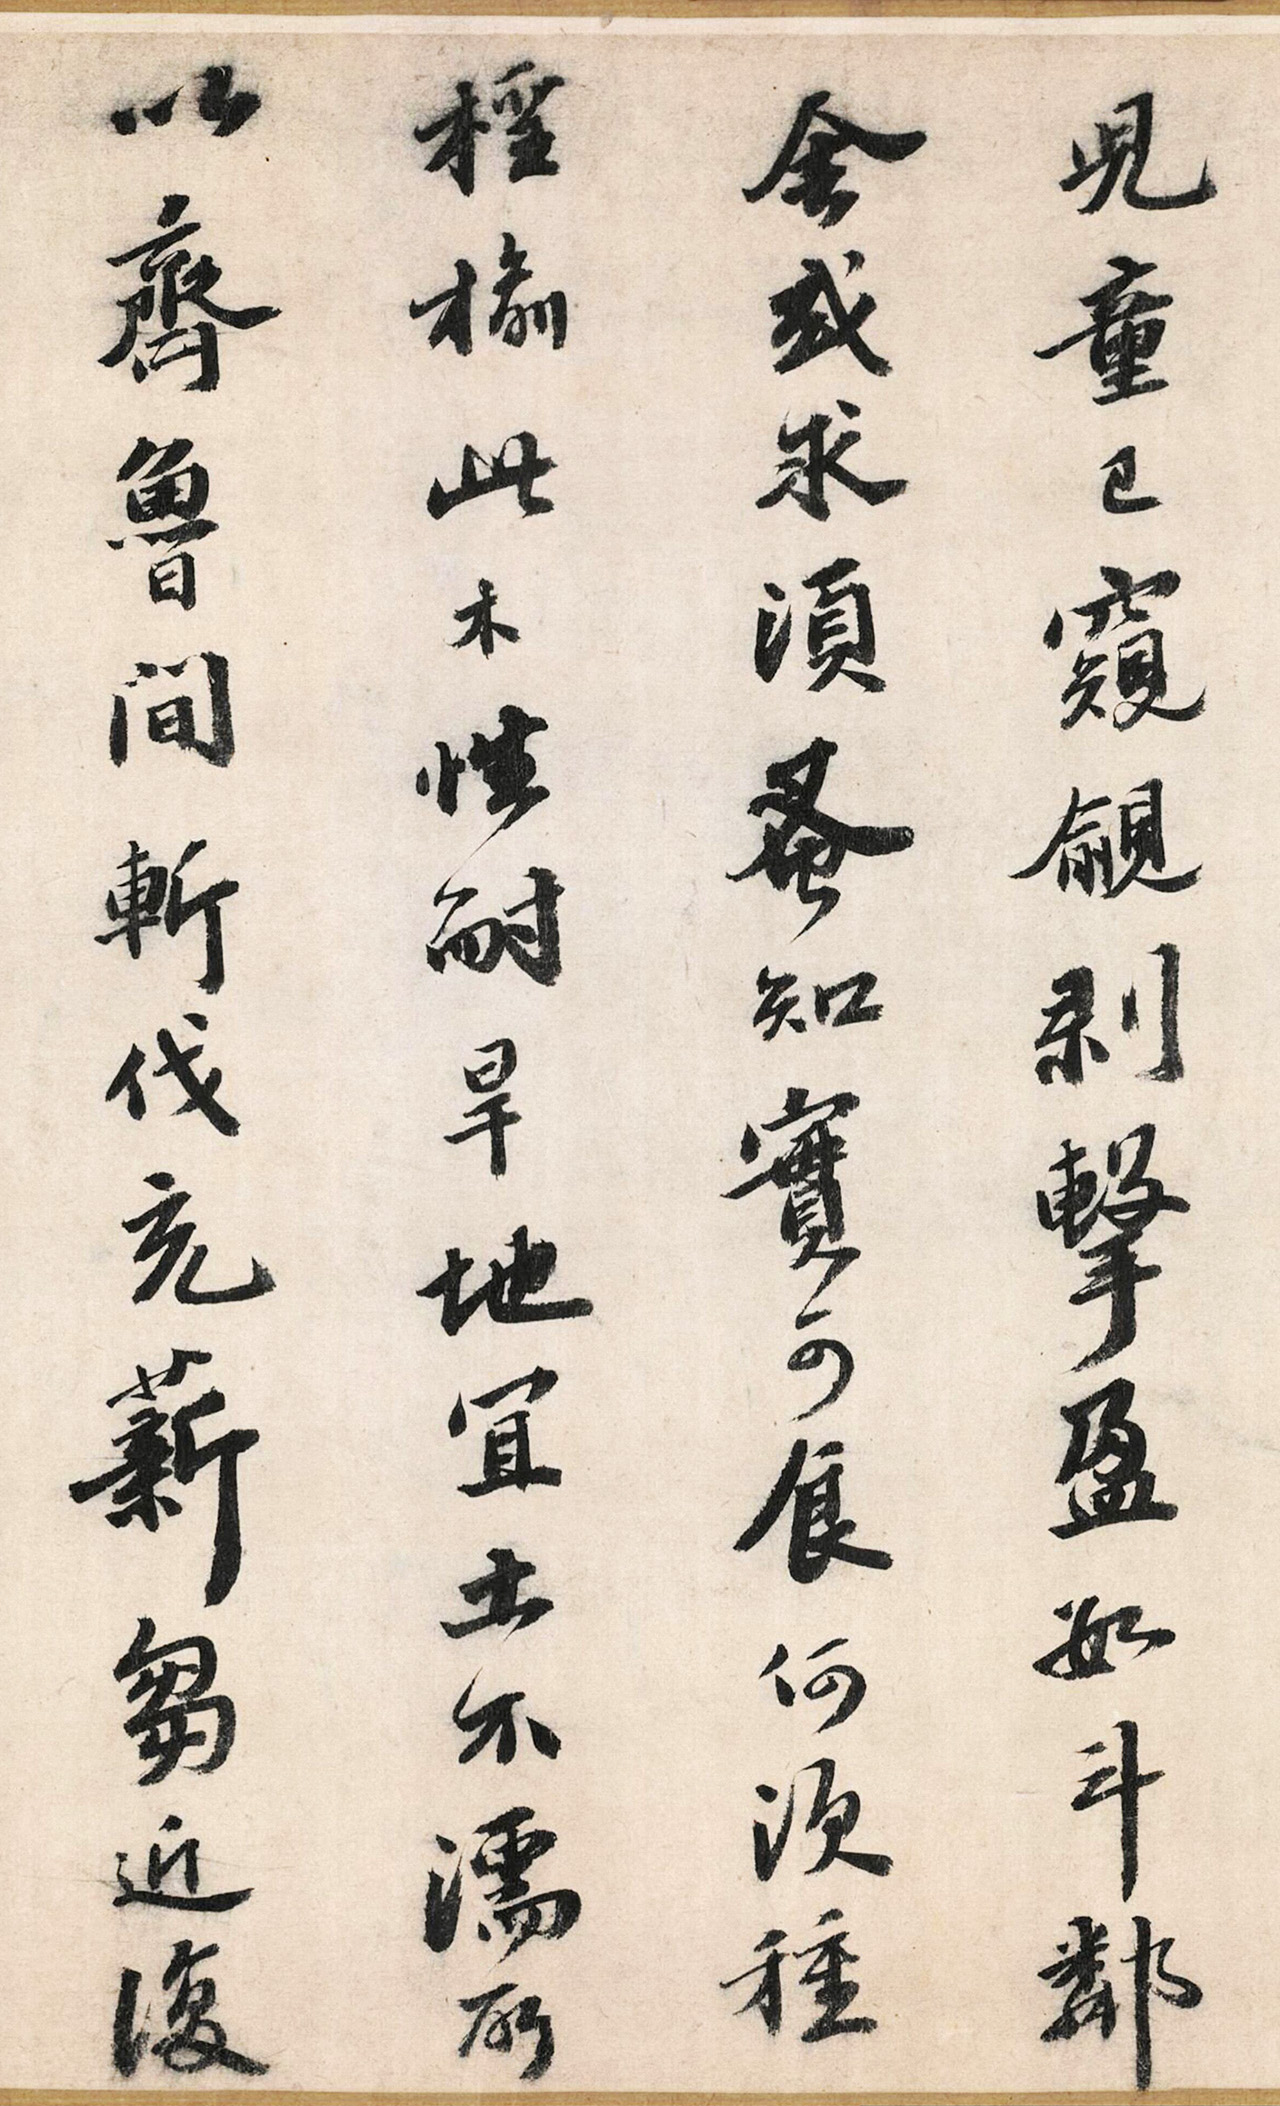 児童已窺覦剥擊盈如斗鄰
舍或求須蚤知實可食何須種
檉榆此木性耐旱地宜土不濡所
以齊魯間斬伐充薪芻近復